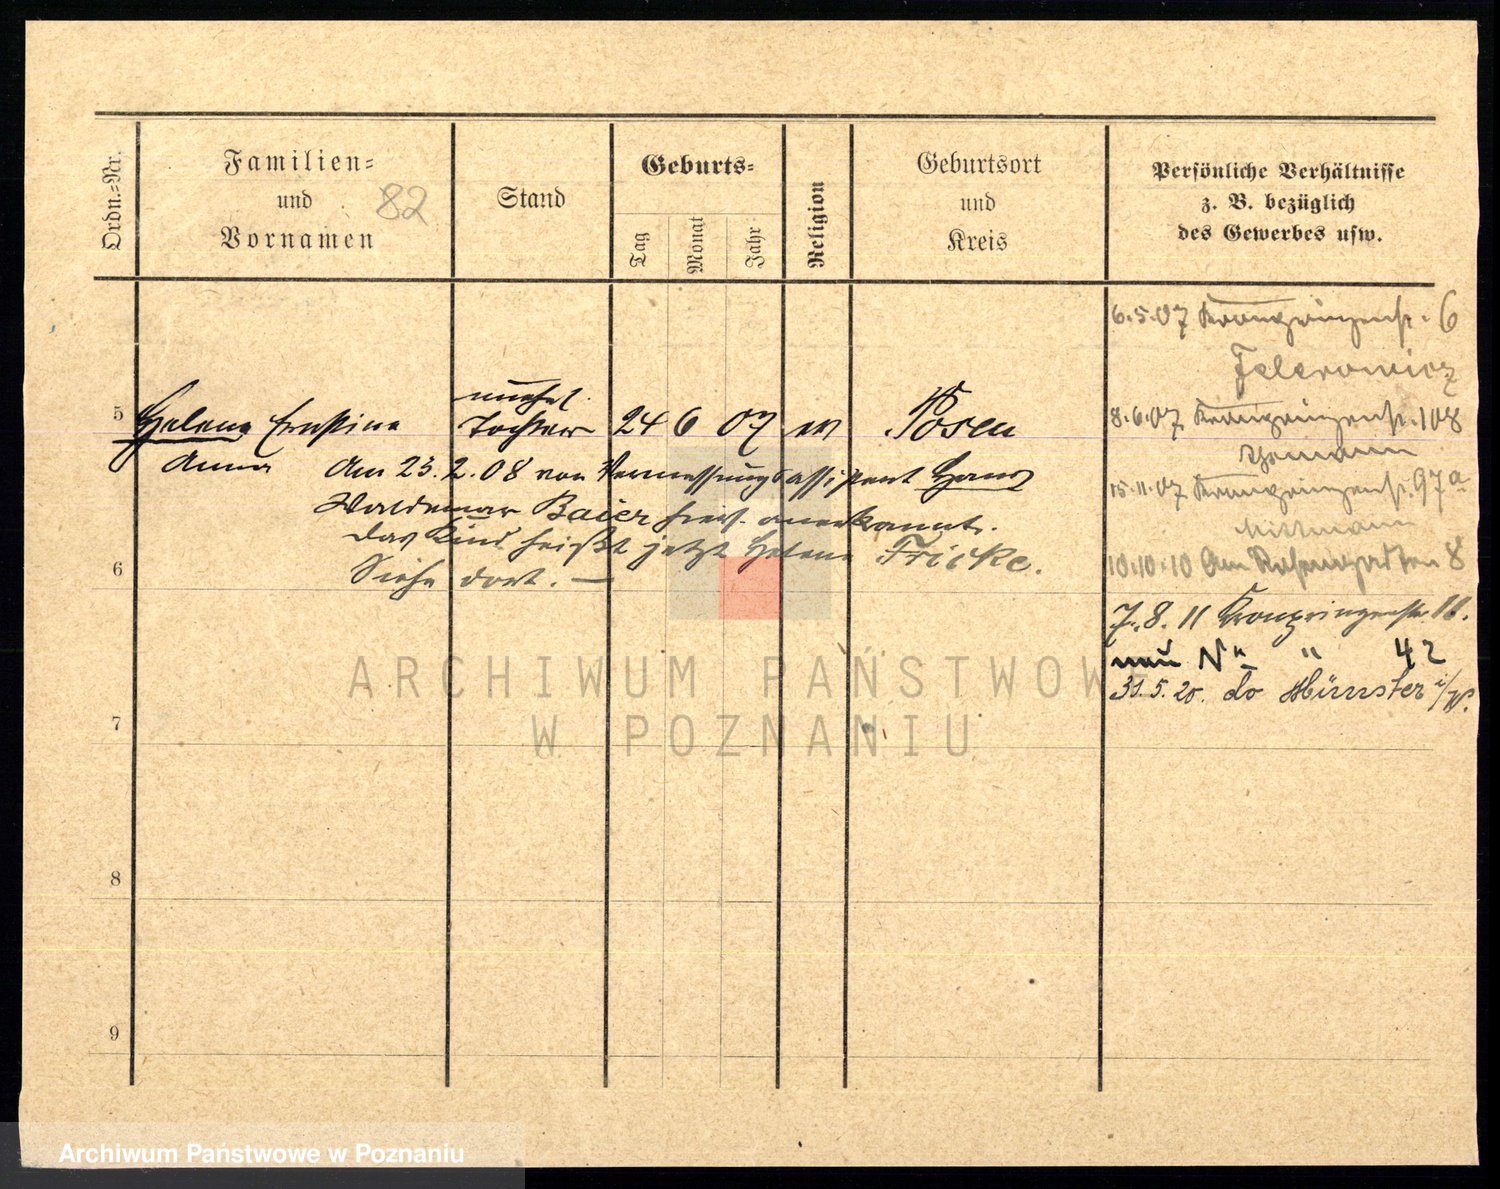 Ordn.=Nr.
Familien=
und
Vornamen
82
Stand
Geburts=
Tag
Monat
Jahr
Religion
Geburtsort
und
Kreis
Persönliche Verhältnisse
z. B. bezüglich
des Gewerbes usw.
6.5.07 Kronprinzenstr. 6
Felerowicz
5 Helene Ernstine unehel. Tochter 24 6 07 ev Posen
8.6.07 Kronprinzenstr. 108
Anna Am 23.2.08 von Vermessungsassistent Hans
15.11.07 Kronprinzenstr. 97a
Waldemar Baier hier. anerkannt.
Mittmann
das Kind heißt jetzt Helene Fricke.
6
10.10.10 Am Rosengarten 8
Siehe dort. —
7.8.11 Kronprinzenstr. 11.
neu N° " 42
31.5.20. do Münster i/W.
7
8
9
ARCHIWUM PAŃSTWOW
W POZNANIU
Archiwum Państwowe w Poznaniu